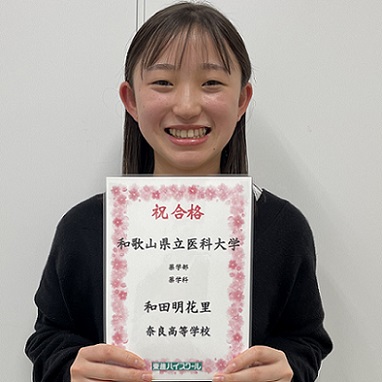 祝合格
和歌山県立医科大学
薬学部
薬学科
和田明花里
奈良高等学校
東進ハイスクール